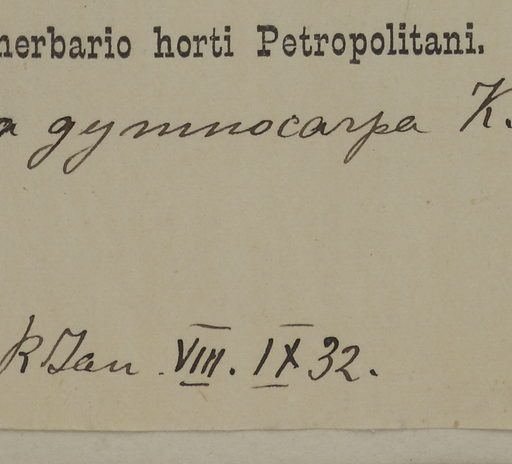 herbario horti Petropolitani.
a gymnocarpa K.
VIII. IX 32.